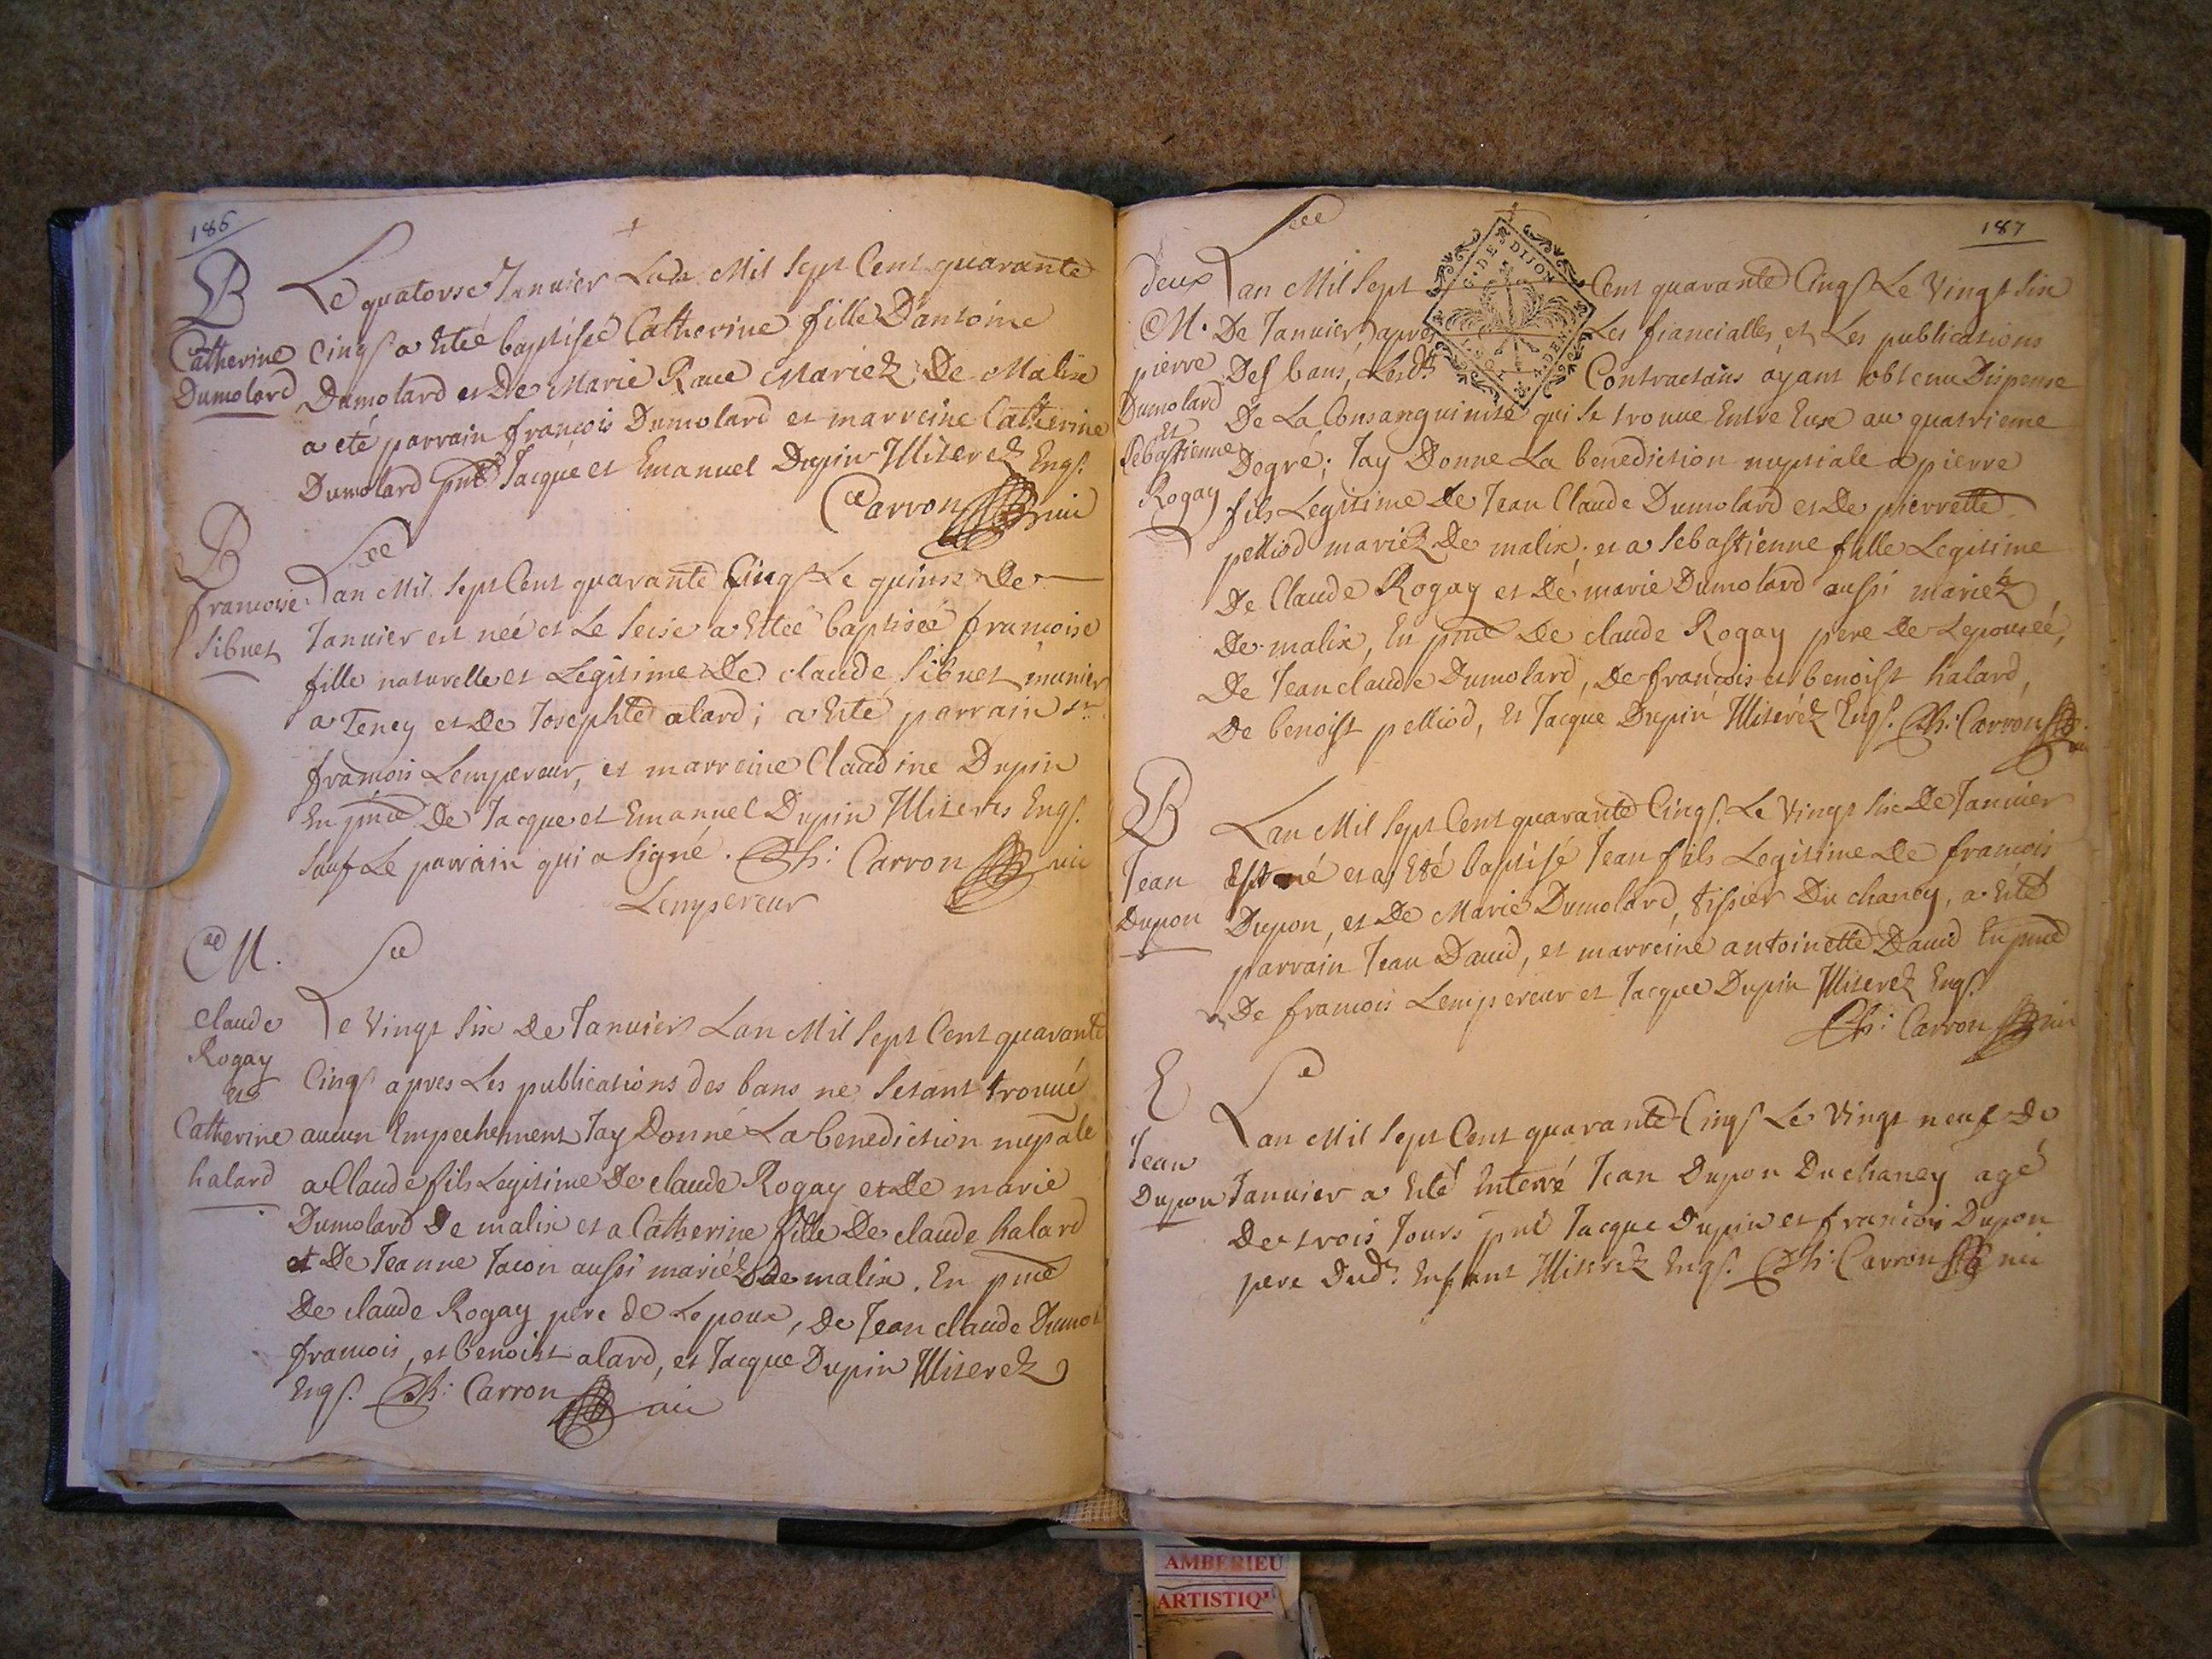 186
B
Le quatorse Janvier Lan Mil Sept Cent quarante
Catherine
Dumolard
Cinq a Eteé baptisée Catherine fille D'antoine
Dumolard et De Marie Race Mariez De Malix
a eté parrain françois Dumolard et marreine Catherine
Dumolard pnt Jacque et Emanuel Dupin Illiterez Enqs.
Carron
B
francoise
Sibuet
Lan Mil Sept Cent quarante Cinq Le quinse De
Janvier est neé et Le Seise a Etteé baptiseé francoise
fille naturelle et Legitime De claude Sibuet munier
a Teney et De Josephte alard; a Eté parrain sr
francois Lempereur, et marreine Claudine Dupin
En pnce De Jacque et Emanuel Dupin Illiterés Enqs.
Sauf Le parrain qui a signé. Ph: Carron
Lempereur
M.
claude
Rogay
et
Catherine
halard
Le Vingt Six De Janvier Lan Mil Sept Cent quarante
Cinq apres Les publications des bans ne Setant trouvé
aucun Empechement Jay Donné La benediction nupale
a Claude fils Legitime De claude Rogay et De marie
Dumolard De malix et a Catherine fille De claude halard
et De Jeanne Jacon aussi mariéz De malix. En pnce
De claude Rogay pere de Lepoux, De Jean claude Dumol
francois, et benoist alard, et Jacque Dupin Illiterez
Enqs. Ph: Carron
187
G. DE DIJON
deux
M.
pierre
Dumolard
et
Sebastienne
Rogay
Lan Mil Sept Cent quarante Cinq Le Vingt Six
De Janvier, apres Les fiancialles, et Les publications
Des bans, Lesdts Contractans ayant obtenu Dispense
De La Consanguinité qui se trouve Entre Eux au quatrieme
Degré; Jay Donne La benediction nuptiale a pierre
fils Legitime De Jean Claude Dumolard et De pierrette
pelliod mariéz De malix; et a Sebastienne fille Legitime
De Claude Rogay et De marie Dumolard aussi mariéz
De malix, En pnce De claude Rogay pere De Lepouseé,
De Jean claude Dumolard, De françois et benoist halard,
De benoist pelliod, Et Jacque Dupin Illiteréz Enqs. Ph: Carron
B
Jean
Dupon
Lan Mil Sept Cent quarante Cinq. Le Vingt Six De Janvier
Est né et a Eté baptisé Jean fils Legitime De francois
Dupon, et De Marie Dumolard, tissier Du chaney, a Eté
parrain Jean David, et marreine antoinette David En pnce
De francois Lempereur et Jacque Dupin Illiterez Enqs.
Ph: Carron
E
Jean
Dupon
Lan Mil Sept Cent quarante Cinq Le Vingt neuf De
Janvier a Eté Enterré Jean Dupon Du chaney agé
De trois Jours pnt Jacque Dupin et francois Dupon
pere Dudt. Enfant Illiterez Enqs. Ph: Carron
AMBERIEU
ARTISTIQ